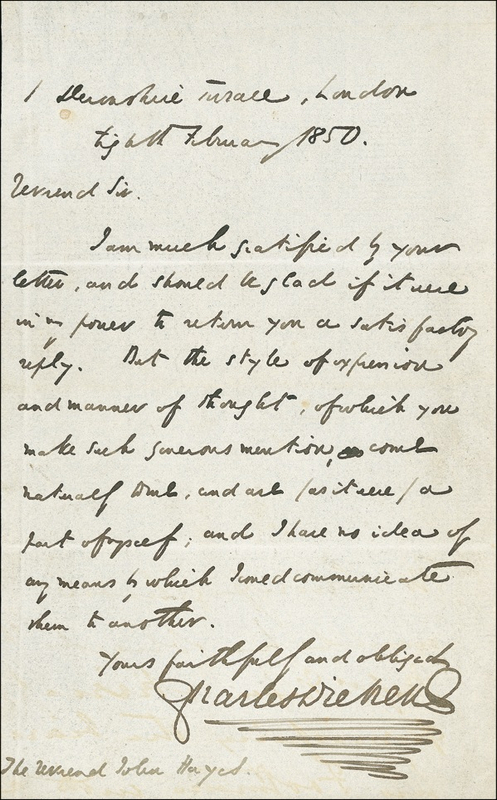 1 Devonshire Terrace, London
Eighth February 1850.
Reverend Sir.
I am much gratified by your
letter, and should be glad if it were
in my power to return you a satisfactory
reply. But the style of expression
and manner of thought, of which you
make such generous mention, come
naturally to me, and are (as it were) a
part of myself; and I have no idea of
any means by which I could communicate
them to another.
Yours faithfully and obliged
Charles Dickens
The Reverend John Hayes.